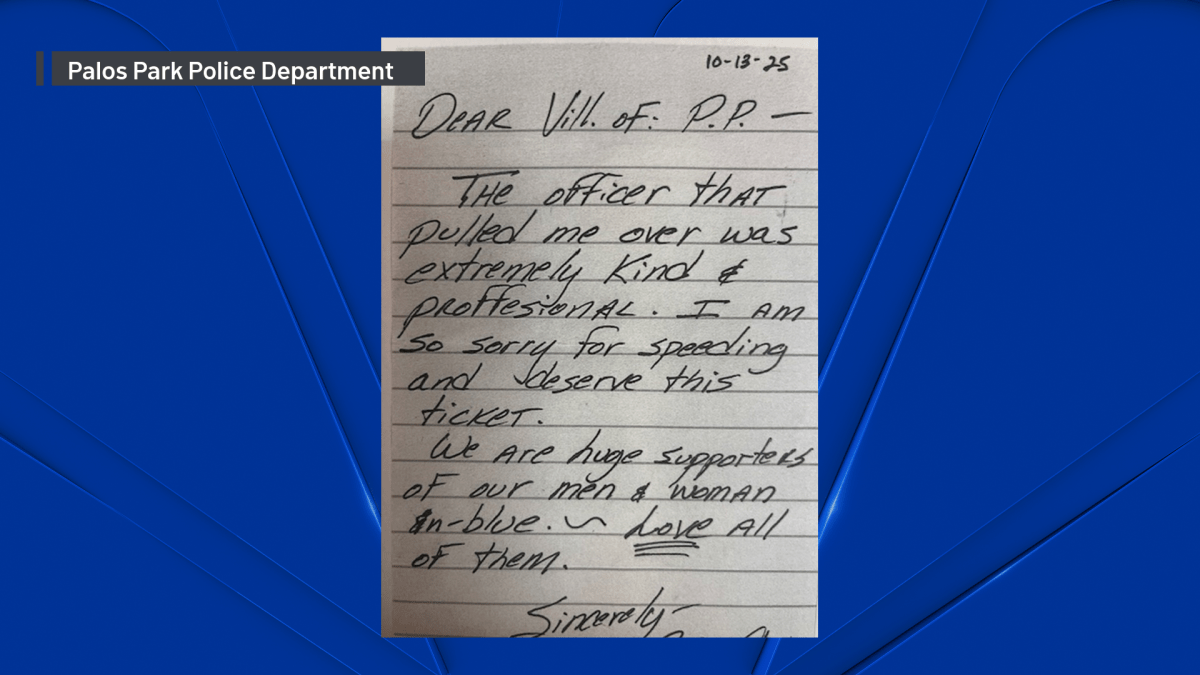 Palos Park Police Department
10-13-25
Dear Vill. of: P.P. —
The officer that
pulled me over was
extremely kind &
proffesional. I am
so sorry for speeding
and deserve this
ticket.
We are huge supporters
of our men & woman
in-blue. ~ Love All
of them.
Sincerely-